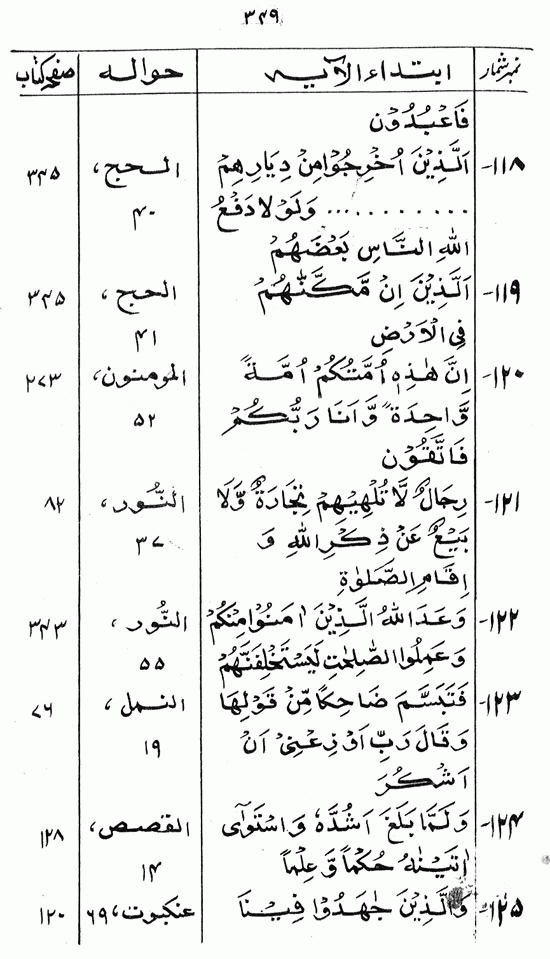 ۳۴۹
نمبر شمار ابتداء الآیہ حوالہ صفحہ کتاب
فَاعْبُدُوْن
۱۱۸- اَلَّذِیْنَ اُخْرِجُوْا مِنْ دِیَارِهِمْ الحج، ۳۴۵
.......... وَلَوْلَا دَفْعُ ۴۰
اللهِ النَّاسِ بَعْضَهُمْ
۱۱۹- اَلَّذِیْنَ اِنْ مَّكَّنّٰهُمْ الحج، ۳۴۵
فِی الْاَرْضِ ۴۱
۱۲۰- اِنَّ هٰذِهٖ اُمَّتُكُمْ اُمَّةً المومنون، ۲۷۳
وَّاحِدَةً وَّاَنَا رَبُّكُمْ ۵۲
فَاتَّقُوْن
۱۲۱- رِجَالٌ لَّا تُلْهِیْهِمْ تِجَارَةٌ وَّلَا النُّور، ۸۲
بَیْعٌ عَنْ ذِكْرِ اللهِ وَ ۳۷
اِقَامِ الصَّلٰوةِ
۱۲۲- وَعَدَ اللهُ الَّذِیْنَ اٰمَنُوْا مِنْكُمْ النُّور، ۳۴۳
وَعَمِلُوا الصّٰلِحٰتِ لَیَسْتَخْلِفَنَّهُمْ ۵۵
۱۲۳- فَتَبَسَّمَ ضَاحِكًا مِّنْ قَوْلِهَا النمل، ۷۶
وَقَالَ رَبِّ اَوْزِعْنِیْ اَنْ ۱۹
اَشْكُرَ
۱۲۴- وَلَمَّا بَلَغَ اَشُدَّهٗ وَاسْتَوٰٓی القصص، ۱۲۸
اٰتَیْنٰهُ حُكْمًا وَّعِلْمًا ۱۴
۱۲۵- وَالَّذِیْنَ جٰهَدُوْا فِیْنَا عنکبوت، ۶۹ ۱۲۰